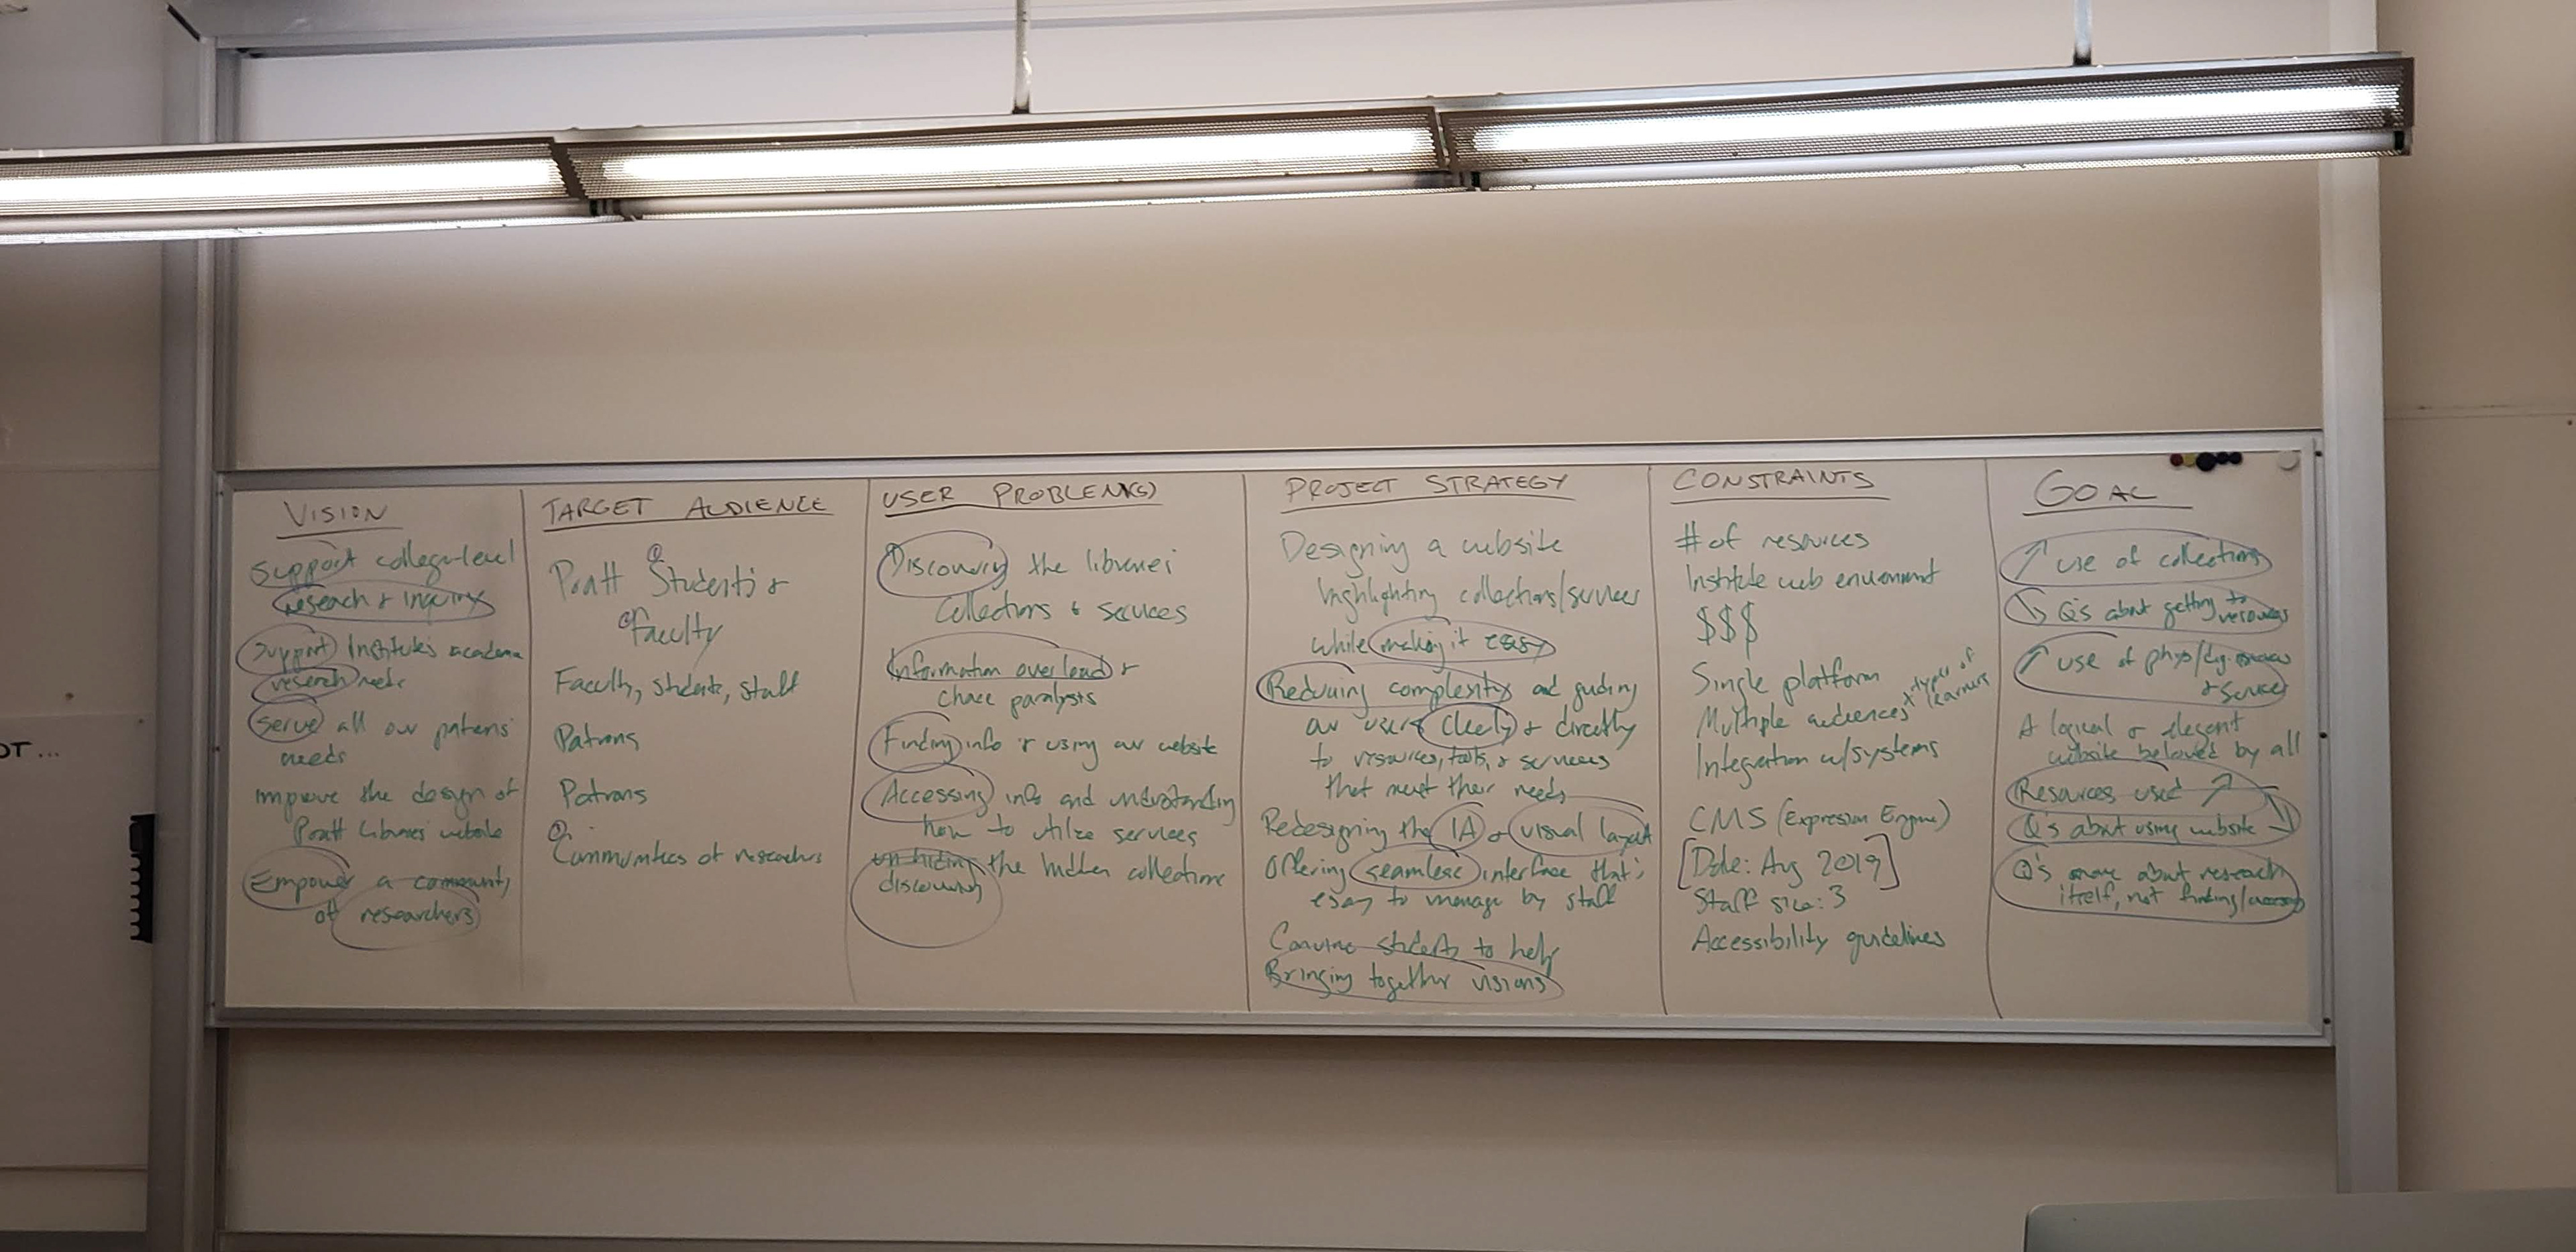 OT...
VISION
Support college-level
research & inquiry
Support Institute's academic
research needs
Serve all our patrons'
needs
Improve the design of
Pratt Libraries' website
Empower a community
of researchers
TARGET AUDIENCE
Pratt Students &
Faculty
Faculty, students, staff
Patrons
Patrons
Communities of researchers
USER PROBLEM(S)
Discovering the libraries'
collections & services
Information overload &
choice paralysis
Finding info & using our website
Accessing info and understanding
how to utilize services
un hiding the hidden collections
discovering
PROJECT STRATEGY
Designing a website
highlighting collections/services
while making it easy
Reducing complexity and guiding
our users clearly & directly
to resources, tools, & services
that meet their needs
Redesigning the IA & visual layout
Offering seamless interface that's
easy to manage by staff
Convince students to help
Bringing together visions
CONSTRAINTS
# of resources
Institute web environment
$$$
Single platform
Multiple audiences + types of
learners
Integration w/systems
CMS (Expression Engine)
[Date: Aug 2019]
Staff size: 3
Accessibility guidelines
GOAL
↗ use of collections
↘ Q's about getting to
resources
↗ use of phys/dig.
& services
A logical & elegant
website beloved by all
Resources used ↗
Q's about using website ↘
Q's more about research
itself, not finding/access